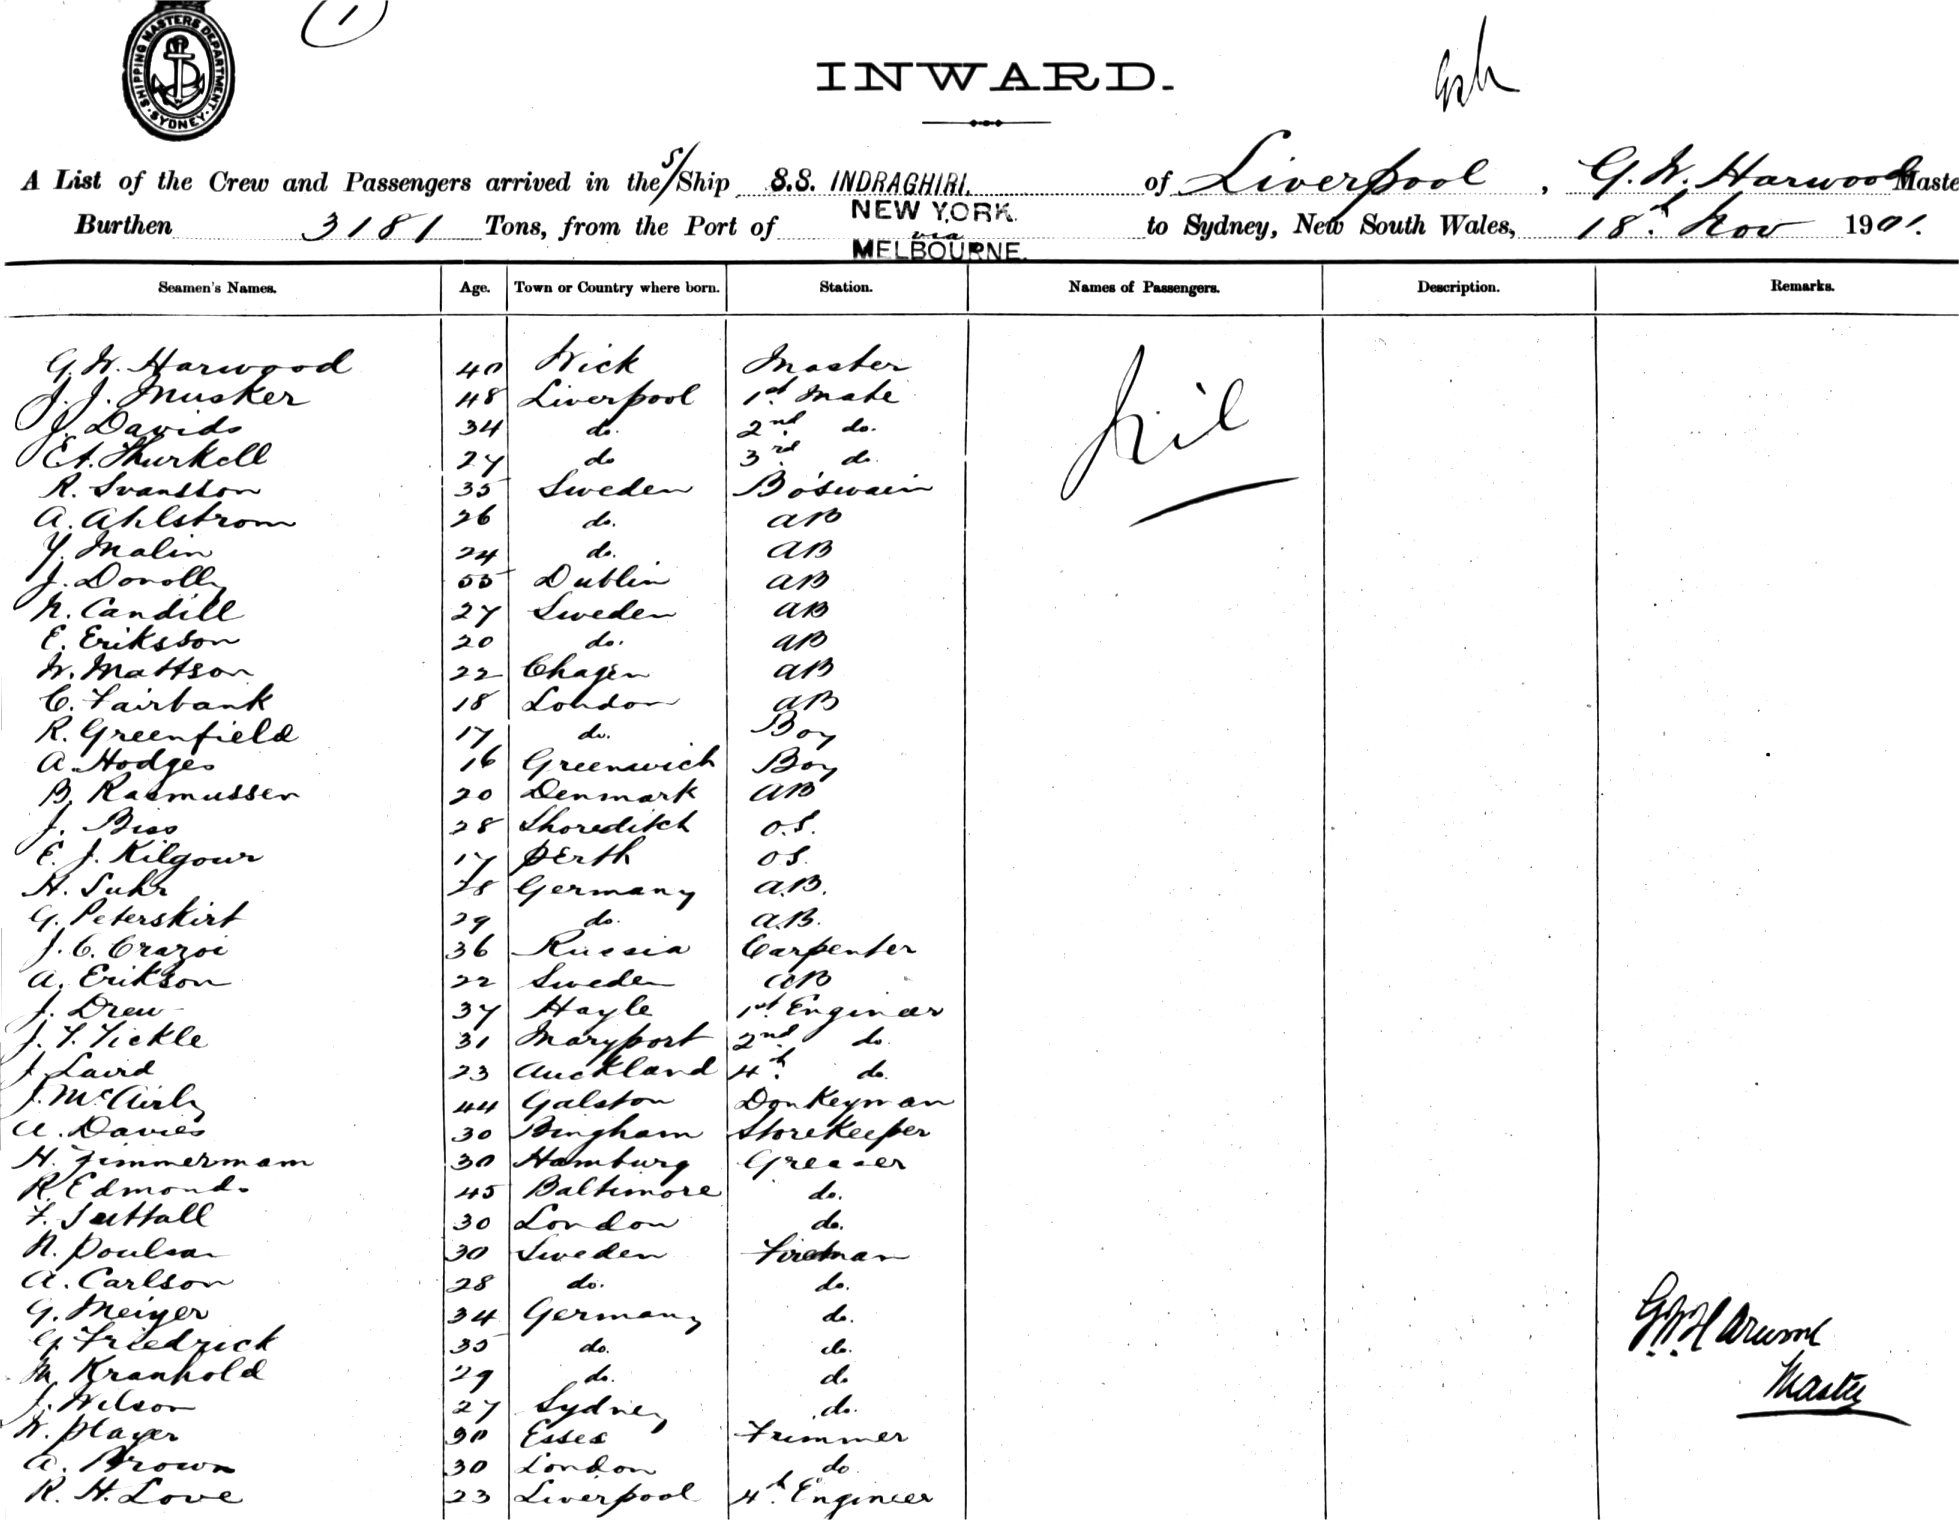 SHIPPING MASTERS DEPARTMENT
SYDNEY
1
INWARD.
A List of the Crew and Passengers arrived in the S/Ship S.S. INDRAGHIRI. of Liverpool, G. W. Harwood Maste
Burthen 3181 Tons, from the Port of NEW YORK. via MELBOURNE. to Sydney, New South Wales, 18th Nov 1901.
Seamen's Names. Age. Town or Country where born. Station. Names of Passengers. Description. Remarks.
G. W. Harwood 40 Wick Master Nil
J. J. Musker 48 Liverpool 1st Mate
J. Davids 34 do. 2nd do.
E. A. Thurkell 27 do 3rd do.
R. Svansson 35 Sweden Bo'swain
A. Ahlstrom 26 do. AB
Y. Malin 24 do. AB
J. Donolly 55 Dublin AB
N. Candill 27 Sweden AB
E. Eriksson 20 do. AB
W. Mattson 22 Chagen AB
C. Fairbank 18 London AB
R. Greenfield 17 do. Boy
A. Hodges 16 Greenwich Boy
B. Rasmussen 20 Denmark AB
J. Biss 28 Shoreditch O.S.
E. J. Kilgour 17 Perth OS.
H. Suhr 28 Germany A.B.
G. Peterskirt 29 do. A.B.
J. C. Crazoi 36 Russia Carpenter
A. Erikson 22 Sweden AB
J. Drew 37 Hayle 1st Engineer
J. T. Tickle 31 Maryport 2nd do.
J. Laird 23 Auckland 4th do.
J. 44 Galston Donkeyman
A. Davies 30 Bingham Storekeeper
H. Zimmermam 30 Hamburg Greaser
R. Edmonds 45 Baltimore do.
F. 30 London do.
N. Poulsan 30 Sweden Fireman
A. Carlson 28 do. do.
G. Meiyer 34 Germany do.
G. Friedrick 35 do. do.
M. Kranhold 29 do. do
J. Wilson 27 Sydney do.
W. Player 30 Essex Trimmer
A. Brown 30 London do
R. H. Love 23 Liverpool 4th Engineer
G. W. Harwood
Master